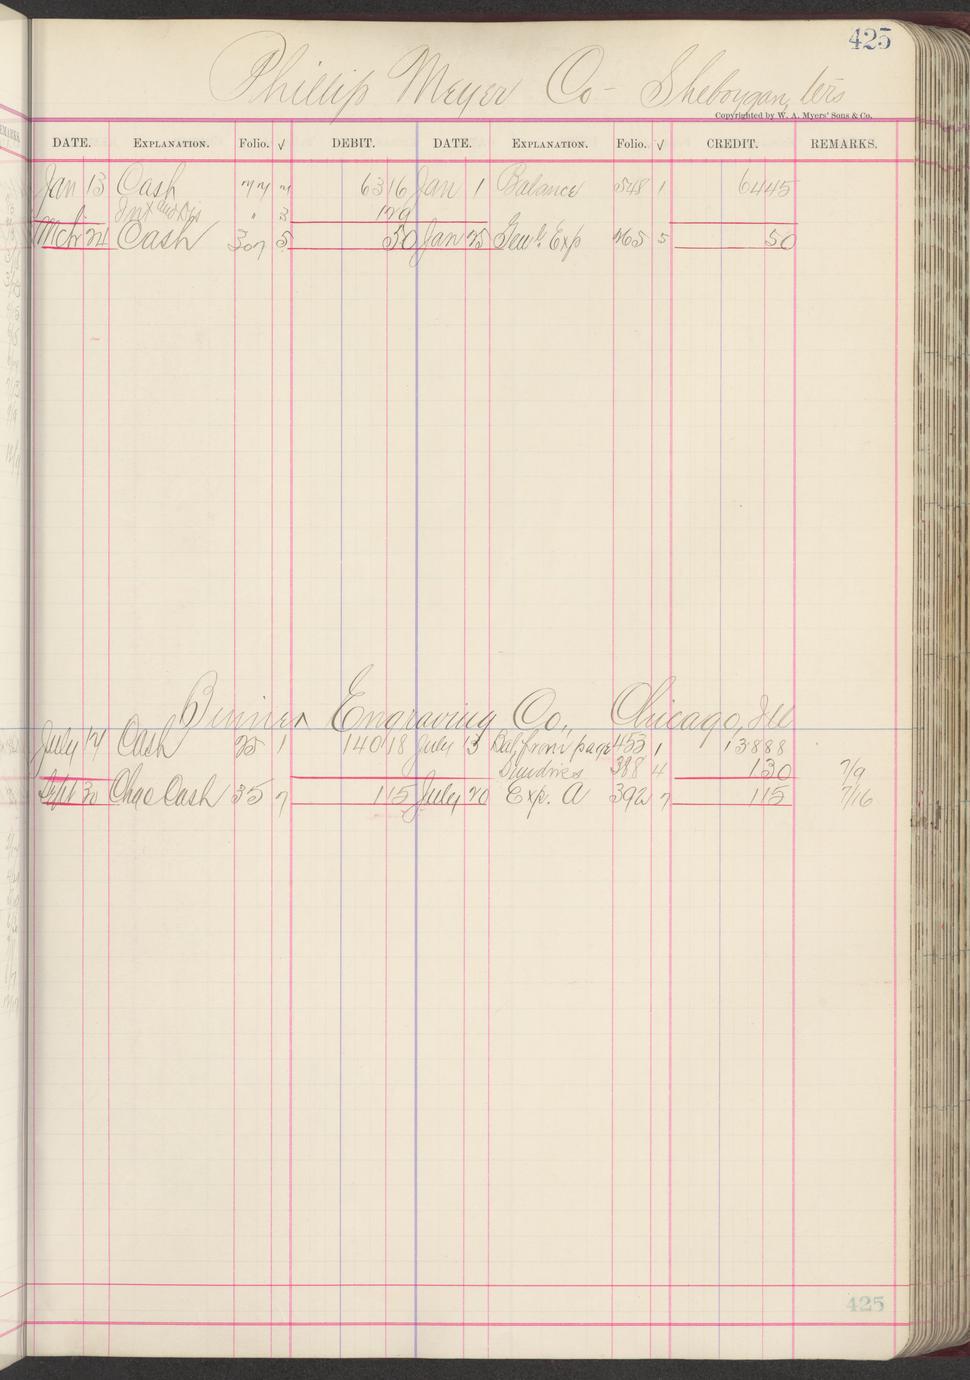 425
Phillip Meyer Co - Sheboygan, Wis
Copyrighted by W. A. Myers' Sons & Co.
DATE. EXPLANATION. Folio. √ DEBIT. DATE. EXPLANATION. Folio. √ CREDIT. REMARKS.
Jan 13 Cash 77 7 63 16 Jan 1 Balance 548 1 64 45
Int and Dis " 3 1 29
Mch 24 Cash 307 5 50 Jan 25 Genl. Exp 265 5 50
Binner Engraving Co., Chicago, Ill
July 14 Cash 25 1 140 18 July 13 Bal, from page 453 1 138 88
Sundries 388 4 1 30 7/9
Sept 30 Chgo Cash 35 7 1 15 July 20 Exp. A 392 7 1 15 7/16
425